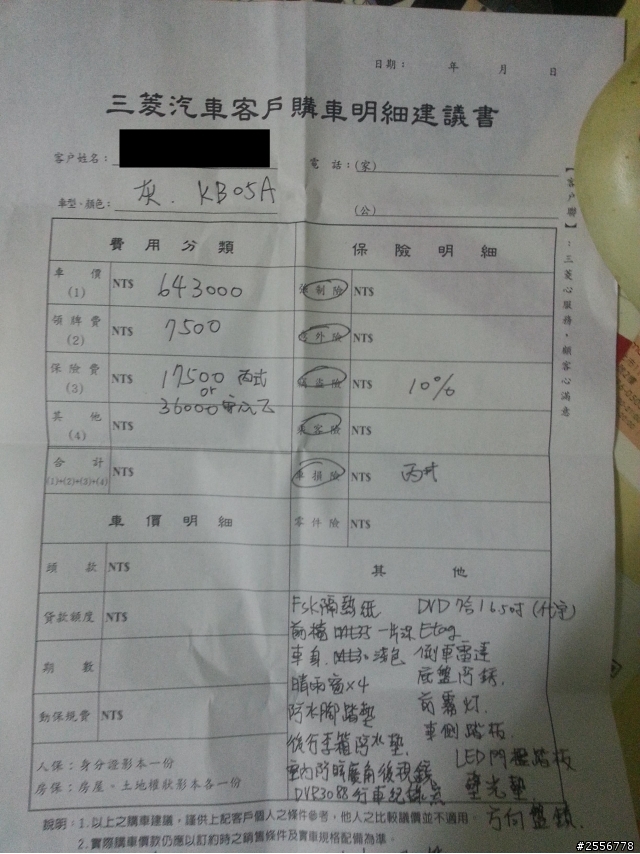 日期： 年 月 日
三菱汽車客戶購車明細建議書
客戶姓名： 電話：(家)
車型、顏色： 灰. KB05A (公)
【客戶聯】：三菱心服務，顧客心滿意
費用分類 保險明細
車價(1) NT$ 643000 強制險 NT$
領牌費(2) NT$ 7500 意外險 NT$
保險費(3) NT$ 17500 丙式 竊盜險 NT$ 10%
or
36000
其他(4) NT$ 乘客險 NT$
合計(1)+(2)+(3)+(4) NT$ 車損險 NT$ 丙式
車價明細 零件險 NT$
頭款 NT$ 其他
貸款額度 NT$
期數 NT$
動保規費 NT$
FSK隔熱紙 DVD 7合1 6.5吋
前檔 一片深 Etag
車身 淺色 倒車雷達
晴雨窗×4 底盤防銹
防水腳踏墊 前霧燈
後行李箱防水墊 車側踏板
室內防眩廣角後視鏡 LED門檻踏板
DVR3088行車紀錄器
方向盤鎖
人保：身分證影本一份
房保：房屋、土地權狀影本各一份
說明：1.以上之購車建議，謹供上記客戶個人之條件參考，他人之比較議價並不適用。
2.實際購車價款仍應以訂約時之銷售條件及實車規格配備為準。
#2556778